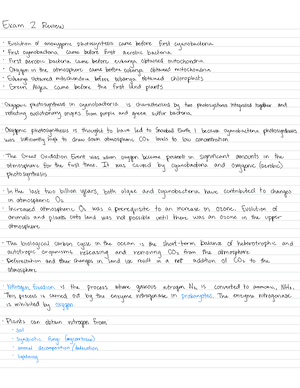 Exam 2 Review
· Evolution of anoxygenic photosynthesis came before first cyanobacteria
· First cyanobacteria came before first aerobic bacteria
· First aerobic bacteria came before eukarya obtained mitochondria
· Oxygen in the atmosphere came before eukarya obtained mitochondria
· Eukarya obtained mitochondria before eukarya obtained chloroplasts
· Green algae came before the first land plants
Oxygenic photosynthesis in cyanobacteria is characterized by two photosystems integrated together and
reflecting evolutionary origins from purple and green sulfur bacteria.
Oxygenic photosynthesis is thought to have led to Snowball Earth 1 because cyanobacteria photosynthesis
was sufficiently high to draw down atmospheric CO₂ levels to low concentration
The Great Oxidation Event was when oxygen became present in significant amounts in the
atmosphere for the first time. It was caused by cyanobacteria and oxygenic (aerobic)
photosynthesis
· In the last two billion years, both algae and cyanobacteria have contributed to changes
in atmospheric O₂
· Increased atmospheric O₂ was a prerequisite to an increase in ozone. Evolution of
animals and plants onto land was not possible until there was an ozone in the upper
atmosphere
· The biological carbon cycle in the ocean is the short-term balance of heterotrophic and
autotrophic organisms releasing and removing CO₂ from the atmosphere
· Deforestation and other changes in land use result in a net addition of CO₂ to the
atmosphere
· Nitrogen fixation is the process where gaseous nitrogen, N₂, is converted to ammonia, NH₃.
This process is carried out by the enzyme nitrogenase in prokaryotes. The enzyme nitrogenase
is inhibited by oxygen
· Plants can obtain nitrogen from
· Soil
· Symbiotic fungi (mycorrhizae)
· animal decomposition/defecation
· lightning